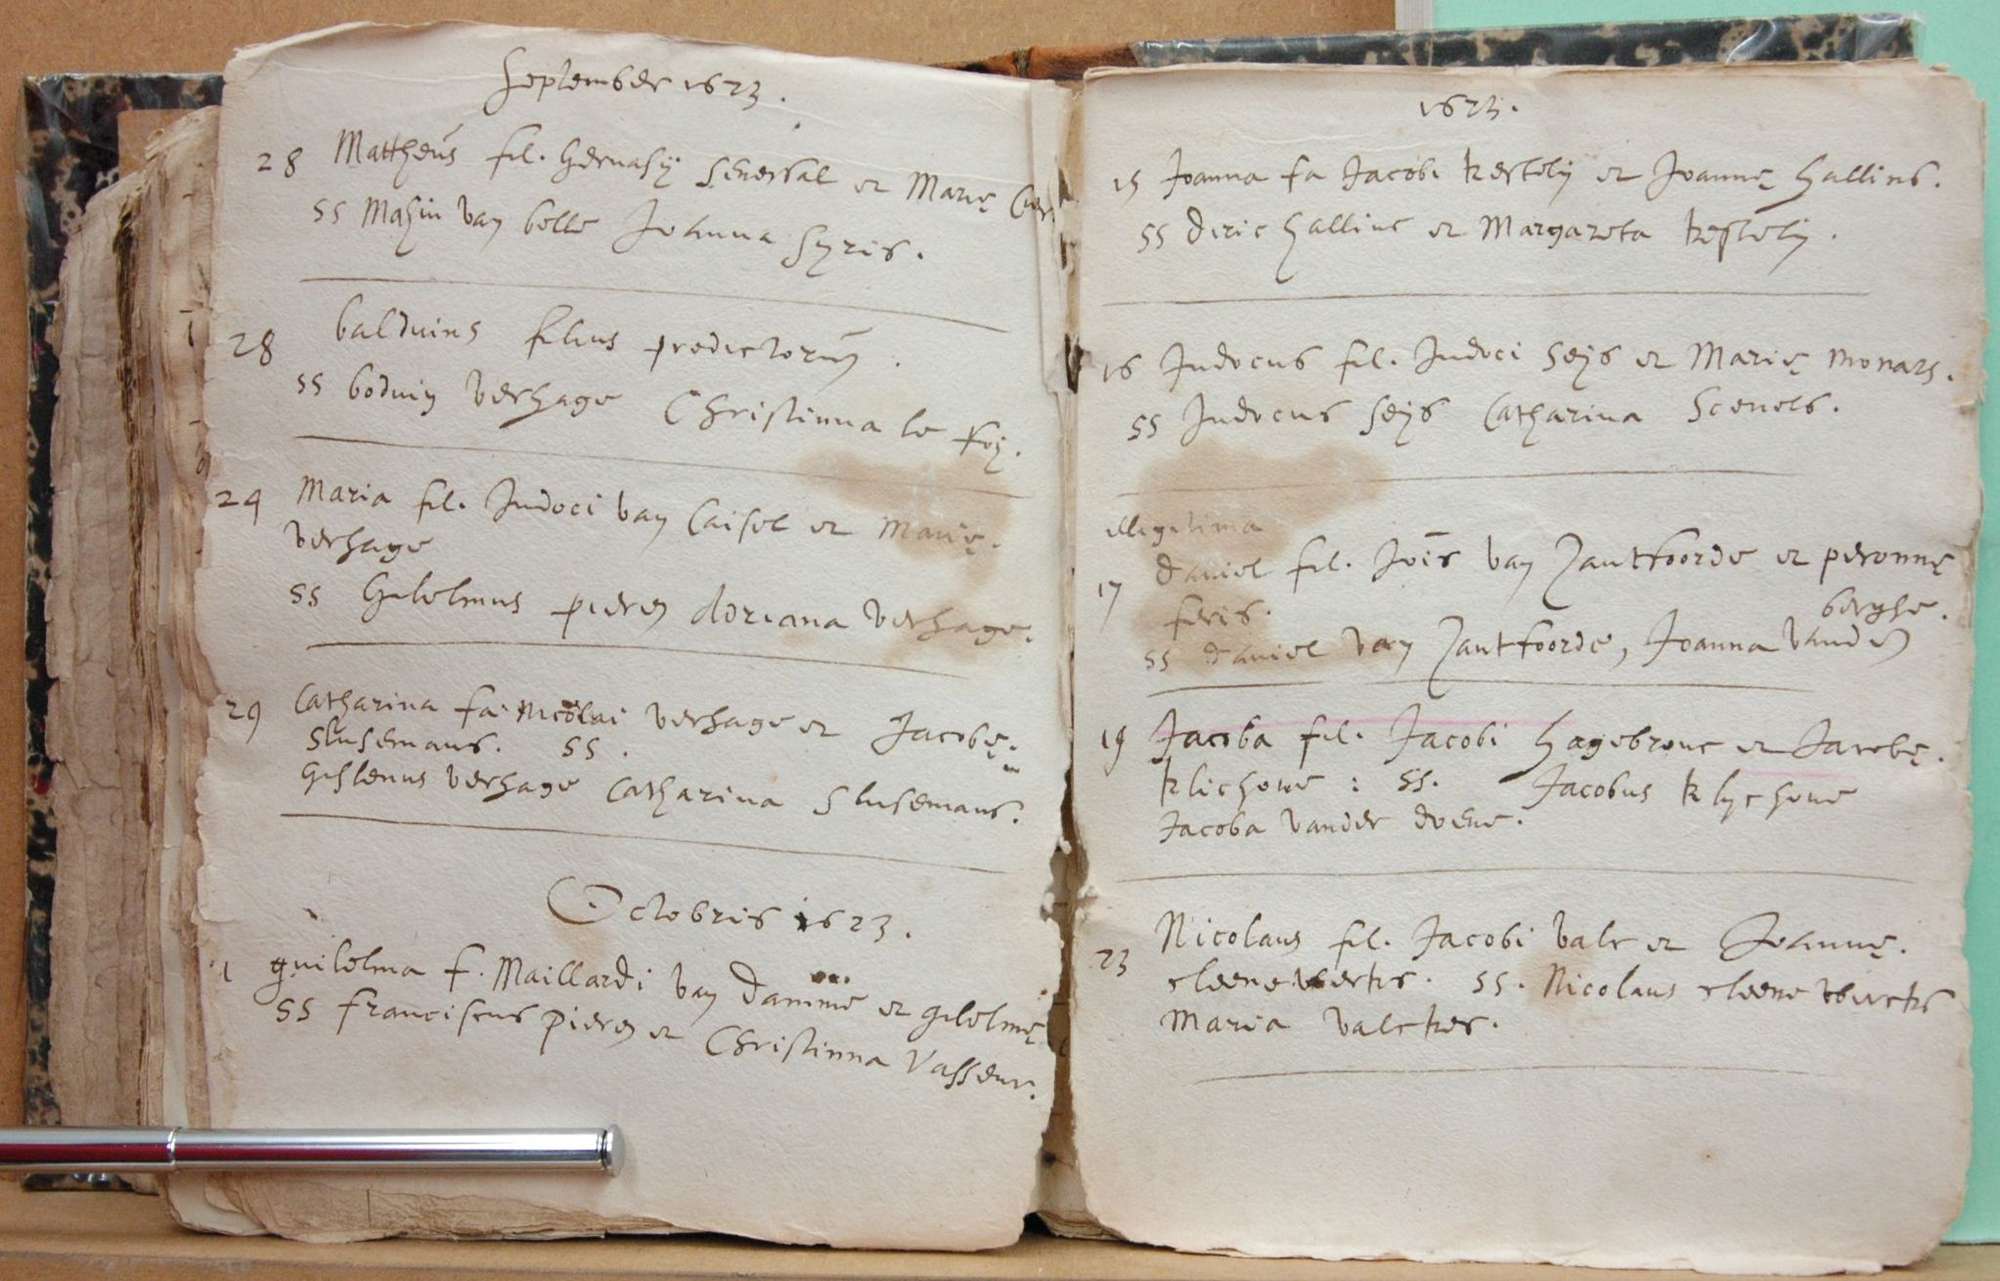 September 1623.
28 Mattheus fil. Gervasij Senessal et Marię
ss Mahiu van belle Joanna Syris.
28 balduins filius predictorum.
ss boduin verhage Christinna le Roy.
24 Maria fil. Judoci van Caisel et Marię.
verhage
ss Gilelmus pieren Adriana verhage.
29 Catharina fa Nicolai verhage et Jacobę.
Slusemans. ss.
Gislenus verhage Catharina Slusemans.
Octobris 1623.
1 guilelma f. Maillardi van Damme et gilelmę
ss Franciscus pieren et Christinna Vasseur.
1623.
15 Joanna fa Jacobi kestely et Joannę hallins.
ss deric hallinc et Margareta kestely.
16 Judocus fil. Judoci Seys et Marię monars.
ss Judocus Seys Catharina Scenels.
illegitima
17 daniel fil. Jois van Zantfoorde et peronnę
feris.
berghe.
ss daniel van Zantfoorde, Joanna vanden
19 Jacoba fil. Jacobi hagebrouc et Jacobę.
klichove : ss. Jacobus klychove
Jacoba vander doene.
23 Nicolaus fil. Jacobi valc et Joannę.
cleenewerks. ss. Nicolaus cleene werks
Maria valckes.